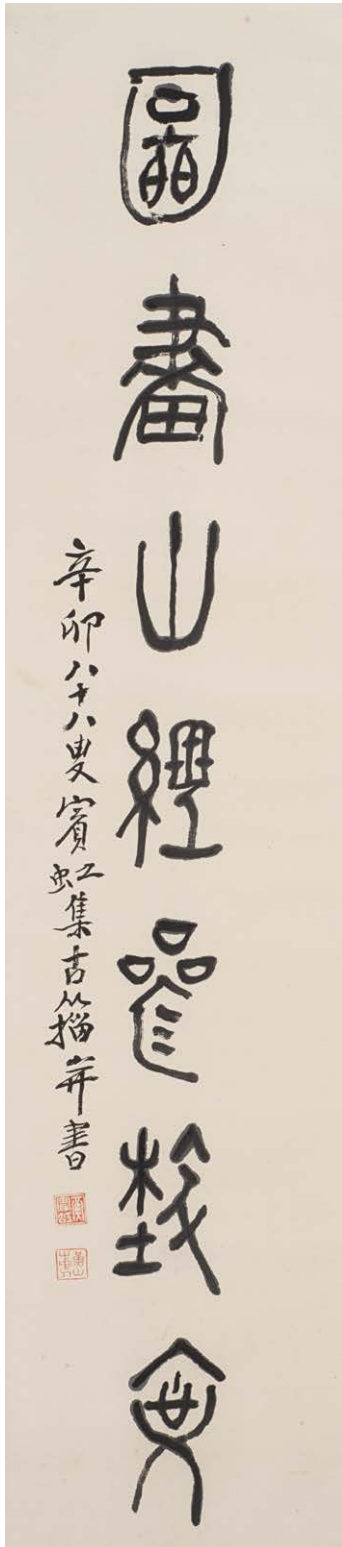 圖畫山經參埶
辛卯八十八叟賓虹集古籀并書